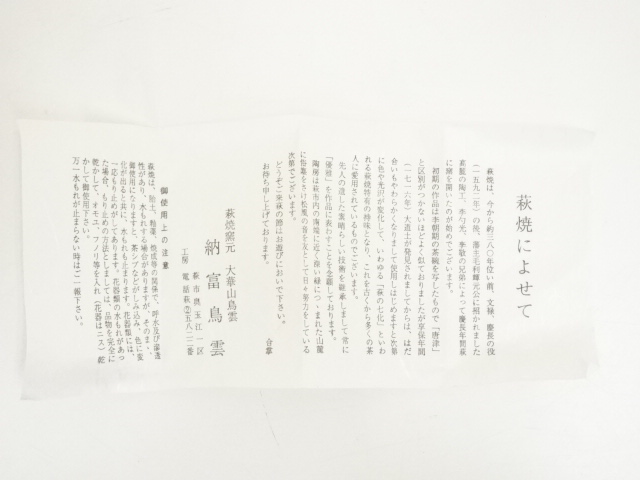 萩焼によせて
萩焼は、今から約三八〇年位い前、文禄、慶長の役
(一五九二年)の後、藩主毛利輝元公に招かれました
直系の陶工、李勺光、李敬の兄弟によって慶長年間萩
に窯を開いたのが始めでございます。
初期の作品は李朝期の茶碗を写したもので「唐津」
と区別がつかないほどよく似ておりましたが享保年間
(一七一六年)大道土が発見されましてからは、はだ
合いもやわらかくなりまして使用しはじめますと次第
に色や光沢が変化して、いわゆる「萩の七化」といわ
れる萩焼特有の特味となり、これを古くから多くの茶
人に愛用されているものでございます。
先人の遺した素晴らしい技術を継承しまして常に
「優雅」を作品に表わすことを念願しております。
陶房は萩市内の南端に近く深い緑につゝまれた山麓
に居を構え松風の音を友として日々努力をしている
次第でございます。
どうぞご来萩の際はお遊びにおいで下さい。
お待ち申し上げております。
合掌
萩焼窯元 大華山鳥雲
納富鳥雲
工房 萩市椿玉江一区
電話萩②五八二二番
御使用上の注意
萩焼は、胎土、釉薬、焼成等の関係で、呼水及び滲透
性があり、水もれする場合がありますが、そのまゝ
御使用になりますと、茶シブなどがしみ込み、色に変
化が出ると共に、水もれも止まります。花器類には、
一応もり止めがしてありますが、花器類の水もれがあっ
た場合、もり止めの方法としましては、品物を完全に
乾かして、オモユ、フノリ等を入れ(花器はニス)乾
かして御使用下さい。
万一水もれが止まらない時はご一報下さい。